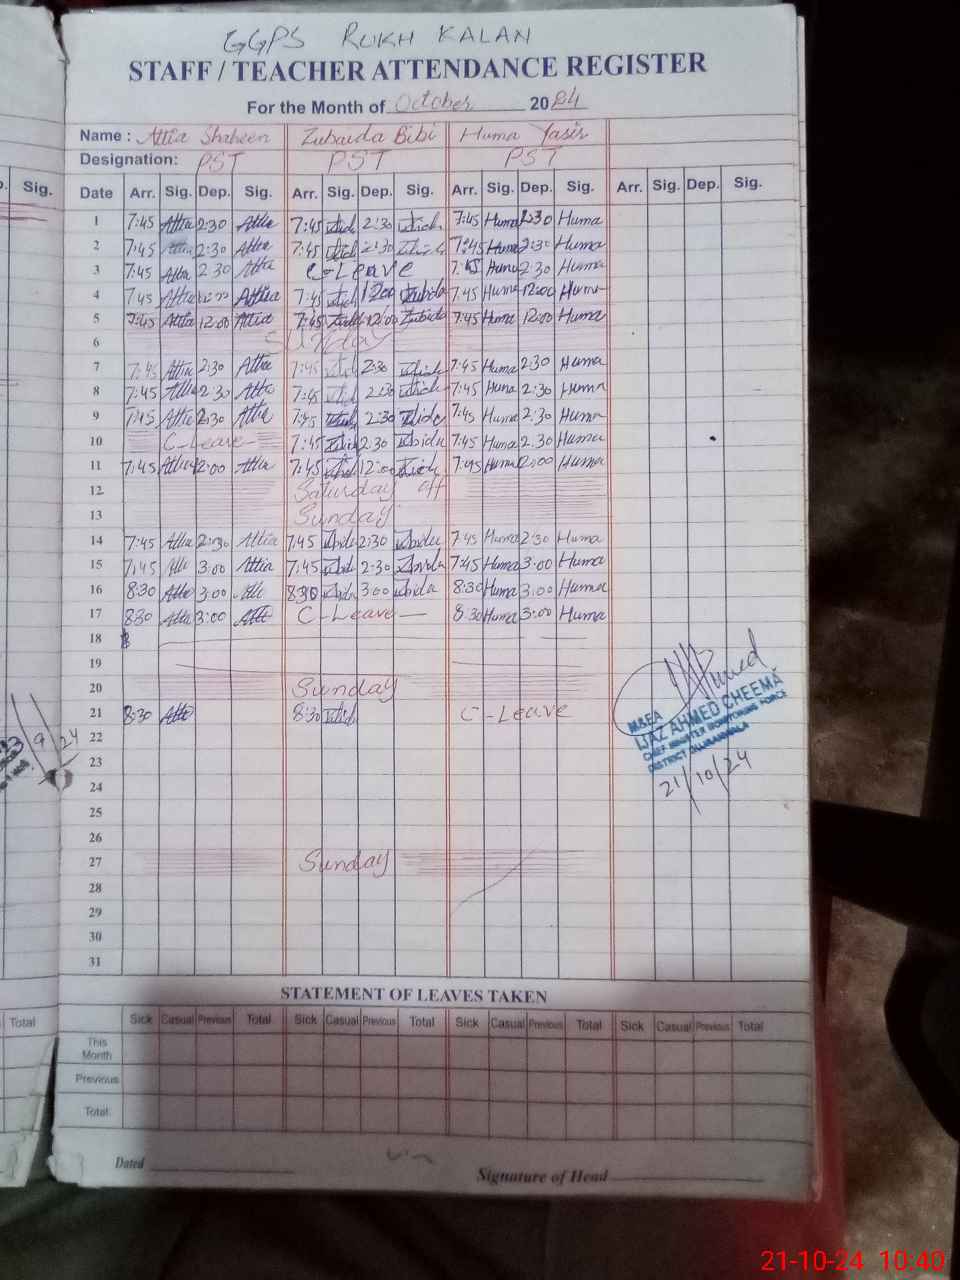 GGPS RUKH KALAN
STAFF / TEACHER ATTENDANCE REGISTER
For the Month of October 2024
Name : Attia Shaheen Zubaida Bibi Huma Yasir
Designation: PST PST PST
Sig. Date Arr. Sig. Dep. Sig. Arr. Sig. Dep. Sig. Arr. Sig. Dep. Sig. Arr. Sig. Dep. Sig.
1 7:45 Attia 2:30 Attia 7:45 2:30 7:45 Huma 2:30 Huma
2 7:45 Attia 2:30 Attia 7:45 2:30 7:45 Huma 2:30 Huma
3 7:45 Attia 2 30 Attia C-Leave 7:45 Huma 2:30 Huma
4 7:45 Attia Attia 7:45 1200 Zubida 7:45 Huma 12:00 Huma
5 7:45 Attia 12:00 Attia 7:45 12:00 Zubida 7:45 Huma 12:00 Huma
6 Sunday
7 7:45 Attia 2:30 Attia 7:45 2:30 7:45 Huma 2:30 Huma
8 7:45 Attia 2:30 Attia 7:45 2:30 7:45 Huma 2:30 Huma
9 7:45 Attia 2:30 Attia 7:45 2:30 7:45 Huma 2:30 Huma
10 C-Leave- 7:45 2:30 7:45 Huma 2.30 Huma
11 7:45 Attia 12:00 Attia 7:45 12:00 7:45 Huma 12:00 Huma
12 Saturday off
13 Sunday
14 7:45 Attia 2:30 Attia 7:45 2:30 7:45 Huma 2:30 Huma
15 7:45 3:00 Attia 7:45 2:30 7:45 Huma 3:00 Huma
16 8:30 3:00 8:30 3:00 8:30 Huma 3:00 Huma
17 830 3:00 C-Leave- 8:30 Huma 3:00 Huma
18
19
20 Sunday
21 8:30 8:30 C-Leave
M&EA
IJAZ AHMED CHEEMA
CHIEF MINISTER MONITORING FORCE
DISTRICT GUJRANWALA
21/10/24
22
9/24
23
24
25
26
27 Sunday
28
29
30
31
STATEMENT OF LEAVES TAKEN
Total Sick Casual Previous Total Sick Casual Previous Total Sick Casual Previous Total Sick Casual Previous Total
This Month
Previous
Total
Dated
Signature of Head
21-10-24 10:40